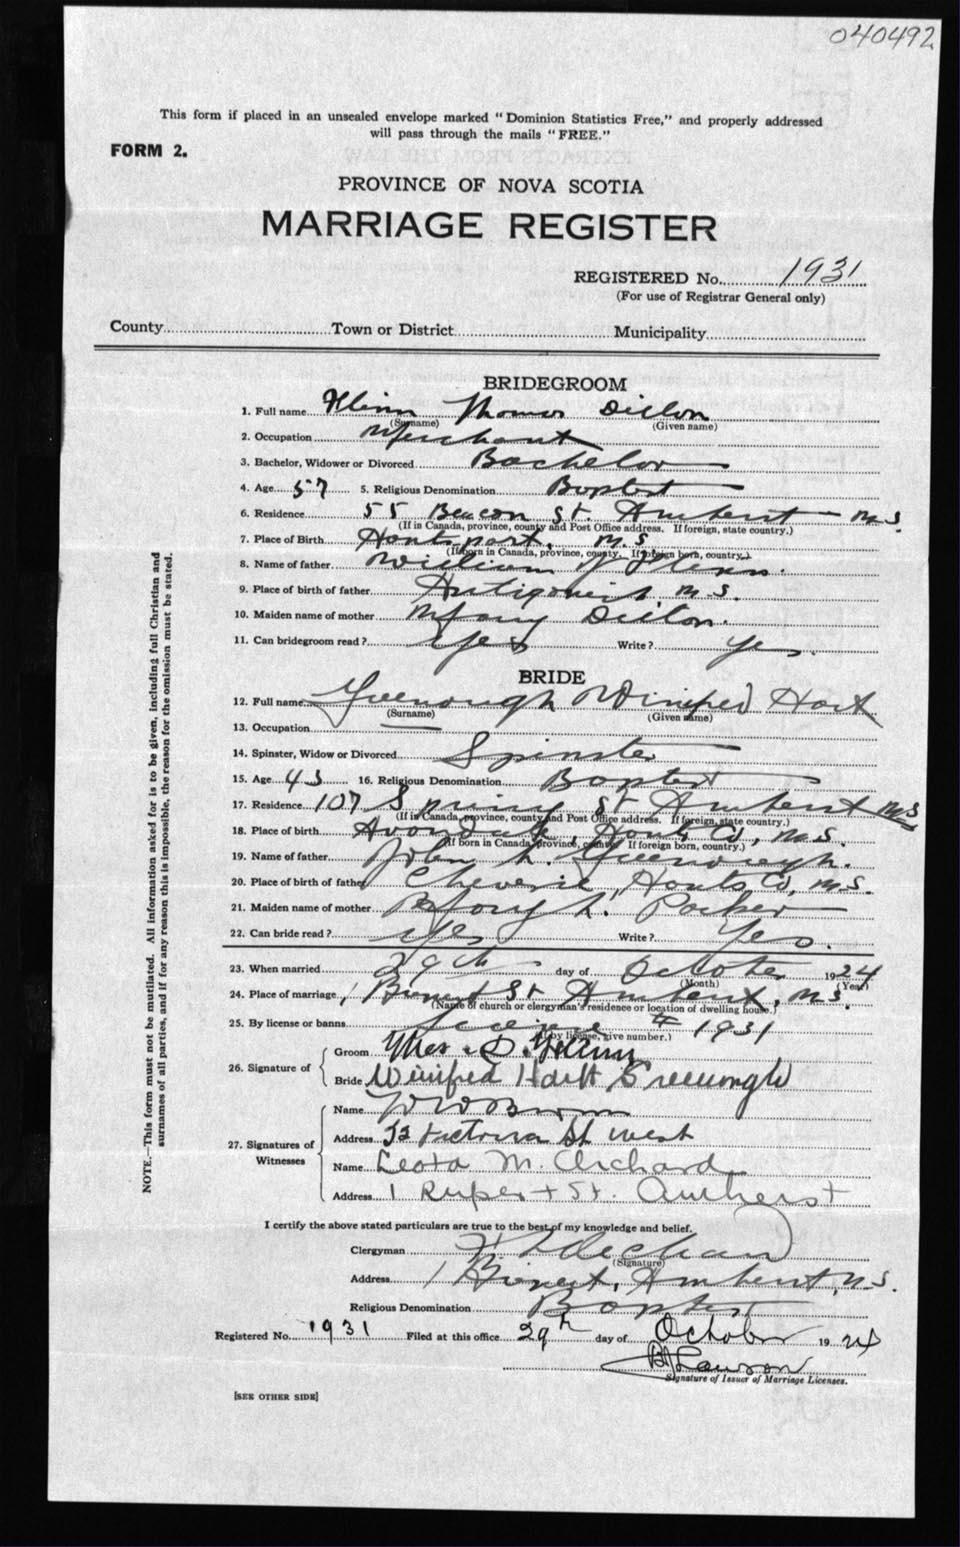 040492
This form if placed in an unsealed envelope marked "Dominion Statistics Free," and properly addressed
will pass through the mails "FREE."
FORM 2.
PROVINCE OF NOVA SCOTIA
MARRIAGE REGISTER
REGISTERED No. 1931
(For use of Registrar General only)
County Town or District Municipality
BRIDEGROOM
1. Full name Flinn Thomas Dillon
(Surname) (Given name)
2. Occupation Merchant
3. Bachelor, Widower or Divorced Bachelor
4. Age 57 5. Religious Denomination Baptist
6. Residence 55 Beacon St. Amherst N.S.
(If in Canada, province, county and Post Office address. If foreign, state country.)
7. Place of Birth Hantsport, N.S.
(If born in Canada, province, county. If foreign born, country.)
8. Name of father William Flinn.
9. Place of birth of father Antigonish N.S.
10. Maiden name of mother Mary Dillon.
11. Can bridegroom read? Yes Write? Yes.
BRIDE
12. Full name Greenough Winifred Hart
(Surname) (Given name)
13. Occupation —
14. Spinster, Widow or Divorced Spinster
15. Age 43 16. Religious Denomination Baptist
17. Residence 107 Spring St Amherst N.S
(If in Canada, province, county and Post Office address. If foreign, state country.)
18. Place of birth Avondale, Hants Co, N.S.
(If born in Canada, province, county. If foreign born, country.)
19. Name of father John Greenough.
20. Place of birth of father Cheverie, Hants Co, N.S.
21. Maiden name of mother Mary Parker
22. Can bride read? Yes Write? Yes.
23. When married 29th day of October 1924
(Month) (Year)
24. Place of marriage 1 St Amherst, N.S.
(Name of church or clergyman's residence or location of dwelling house.)
25. By license or banns License # 1931
(If by license, give number.)
26. Signature of
Groom Thos. D. Flinn
Bride Winifred Hart Greenough
27. Signatures of Witnesses
Name
Address 32 Victoria St West
Name Leota M. Orchard
Address 1 Rupert St. Amherst
I certify the above stated particulars are true to the best of my knowledge and belief.
Clergyman
(Signature)
Address 1 Amherst, N.S.
Religious Denomination Baptist
Registered No. 1931 Filed at this office 29th day of October 1924
Lawson
Signature of Issuer of Marriage Licenses.
[SEE OTHER SIDE]
NOTE.—This form must not be mutilated. All information asked for is to be given, including full Christian and
surnames of all parties, and if for any reason this is impossible, the reason for the omission must be stated.